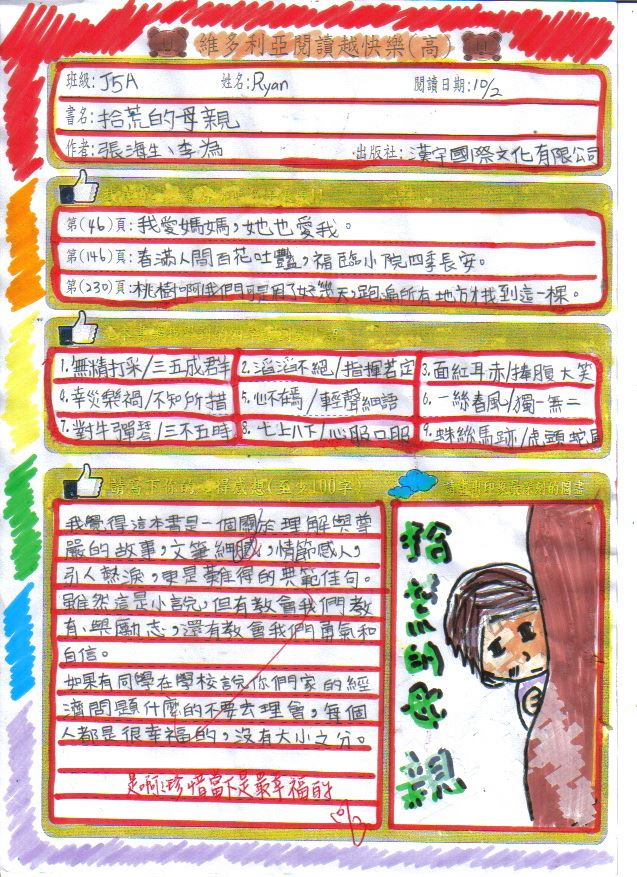 維多利亞閱讀越快樂(高)
班級:J5A 姓名:Ryan 閱讀日期:10/2
書名:拾荒的母親
作者:張海生、李為 出版社:漢宇國際文化有限公司
第(46)頁:我愛媽媽,她也愛我。
第(146)頁:春滿人間百花吐豔,福臨小院四季長安。
第(230)頁:桃樹啊我們可是用了好幾天,跑遍所有地方才找到這一棵。
1.無精打采/三五成群 2.滔滔不絕/指揮若定 3.面紅耳赤/捧腹大笑
4.幸災樂禍/不知所措 5.心不在焉/輕聲細語 6.一絲春風/獨一無二
7.對牛彈琴/三不五時 8.七上八下/心服口服 9.蛛絲馬跡/虎頭蛇尾
請寫下你的心得感想(至少100字) 請畫出印象最深刻的圖畫
我覺得這本書是一個關於理解與尊
嚴的故事,文筆細膩,情節感人,
引人熱淚,更是難得的典範佳句。
雖然這是小說,但有教會我們教
育與勵志,還有教會我們勇氣和
自信。
如果有同學在學校說你們家的經
濟問題什麼的不要去理會,每個
人都是很幸福的,沒有大小之分。
是啊!珍惜當下是最幸福的